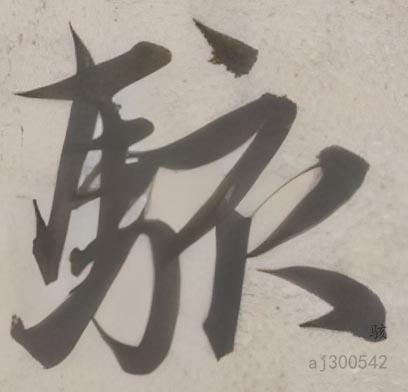 駭
骇
aj300542